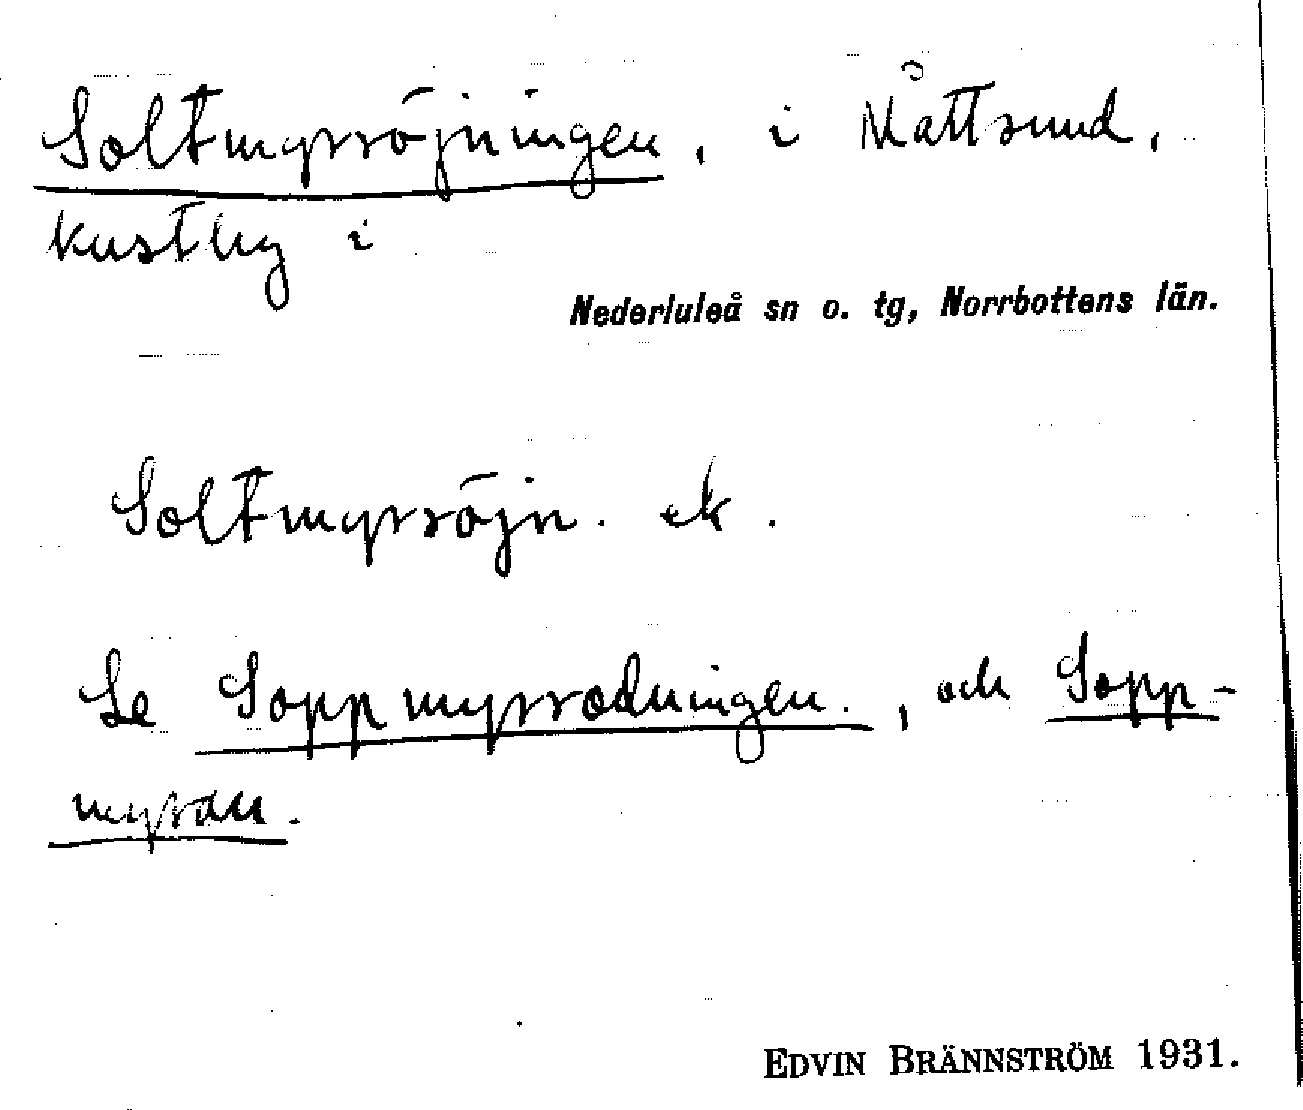 Soltmyrröjningen, i Måttsund,
kustby i
Nederluleå sn o. tg, Norrbottens län.
Soltmyrröjn. ek.
Se Soppmyrrödningen., och Sopp-
myran.
EDVIN BRÄNNSTRÖM 1931.